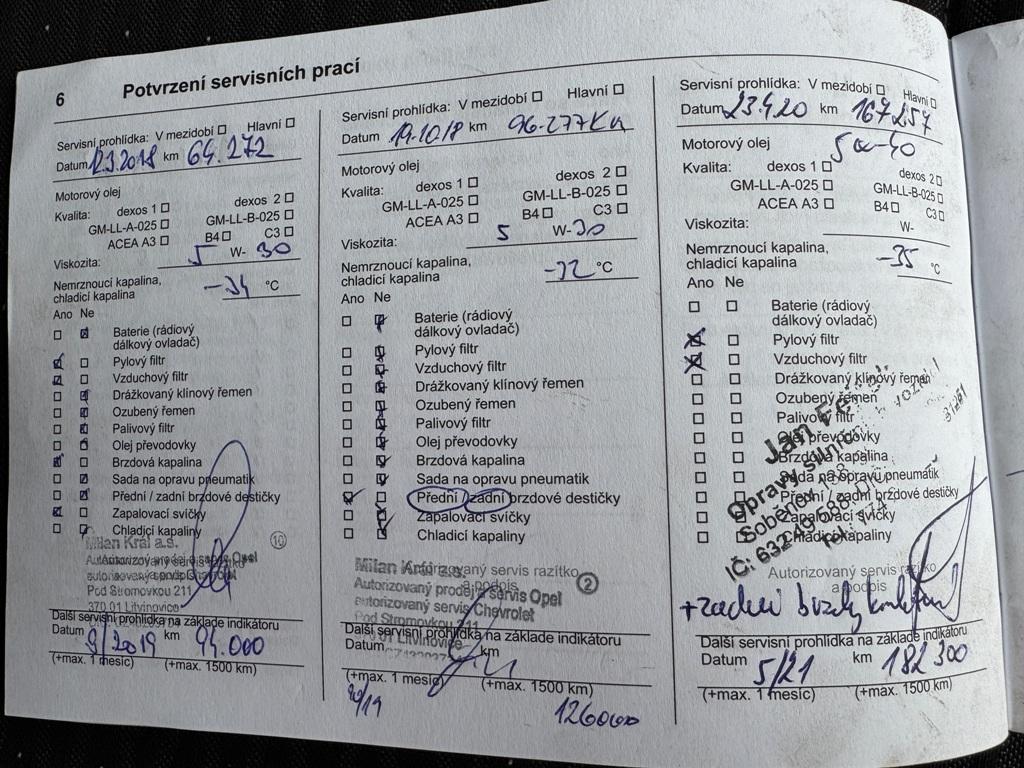 6
Potvrzení servisních prací
Servisní prohlídka: V mezidobí Hlavní
Datum 12.3.2018 km 64.272
Motorový olej
Kvalita: dexos 1 dexos 2
GM-LL-A-025 GM-LL-B-025
ACEA A3 B4 C3
Viskozita: 5 W- 30
Nemrznoucí kapalina,
chladicí kapalina -34 °C
Ano Ne
Baterie (rádiový
dálkový ovladač)
Pylový filtr
Vzduchový filtr
Drážkovaný klínový řemen
Ozubený řemen
Palivový filtr
Olej převodovky
Brzdová kapalina
Sada na opravu pneumatik
Přední / zadní brzdové destičky
Zapalovací svíčky
Chladicí kapaliny
Milan Král a.s.
Autorizovaný servis Opel
autorizovaný servis Chevrolet
Pod Stromovkou 211
370 01 Litvínovice
10
Další servisní prohlídka na základe indikátoru
Datum 9/2019 km 94.000
(+max. 1 mesic) (+max. 1500 km)
Servisní prohlídka: V mezidobí Hlavní
Datum 19.10.18 km 96.277 Km
Motorový olej
Kvalita: dexos 1 dexos 2
GM-LL-A-025 GM-LL-B-025
ACEA A3 B4 C3
Viskozita: 5 W-30
Nemrznoucí kapalina,
chladicí kapalina -32 °C
Ano Ne
Baterie (rádiový
dálkový ovladač)
Pylový filtr
Vzduchový filtr
Drážkovaný klínový řemen
Ozubený řemen
Palivový filtr
Olej převodovky
Brzdová kapalina
Sada na opravu pneumatik
Přední / zadní brzdové destičky
Zapalovací svíčky
Chladicí kapaliny
Autorizovaný servis razítko
a podpis
Milan Král a.s.
Autorizovaný prodej servis Opel
autorizovaný servis Chevrolet
Pod Stromovkou 211
370 01 Litvínovice
2
Další servisní prohlídka na základe indikátoru
Datum km
(+max. 1 mesic) (+max. 1500 km)
10/19 126000
Servisní prohlídka: V mezidobí Hlavní
Datum 23.4.20 km 167257
Motorový olej 5w-40
Kvalita: dexos 1 dexos 2
GM-LL-A-025 GM-LL-B-025
ACEA A3 B4 C3
Viskozita: W-
Nemrznoucí kapalina,
chladicí kapalina -35 °C
Ano Ne
Baterie (rádiový
dálkový ovladač)
Pylový filtr
Vzduchový filtr
Drážkovaný klínový řemen
Ozubený řemen
Palivový filtr
Olej převodovky
Brzdová kapalina
Sada na opravu pneumatik
Přední / zadní brzdové destičky
Zapalovací svíčky
Chladicí kapaliny
Jan
Opravy silnič
Soběnov
IČ: 632
Autorizovaný servis razítko
a podpis
+zadní brzdy
Další servisní prohlídka na základe indikátoru
Datum 5/21 km 182 300
(+max. 1 mesic) (+max. 1500 km)